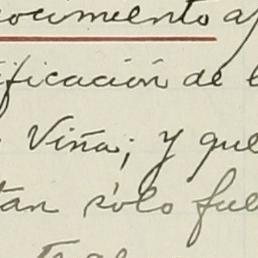 ocumento a
ificación de l
Viña; y que
tan sólo fue